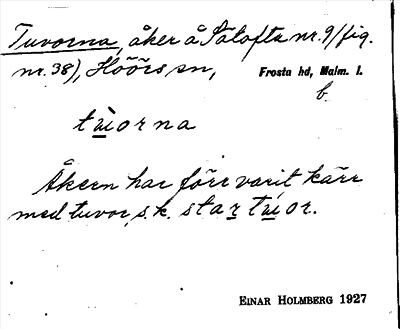 Tuvorna, åker å Sätofta nr. 9/fig.
nr. 38), Höörs sn, Frosta hd, Malm. l.
b.
tùorna
Åkern har förr varit kärr
med tuvor, s.k. star tùor.
EINAR HOLMBERG 1927